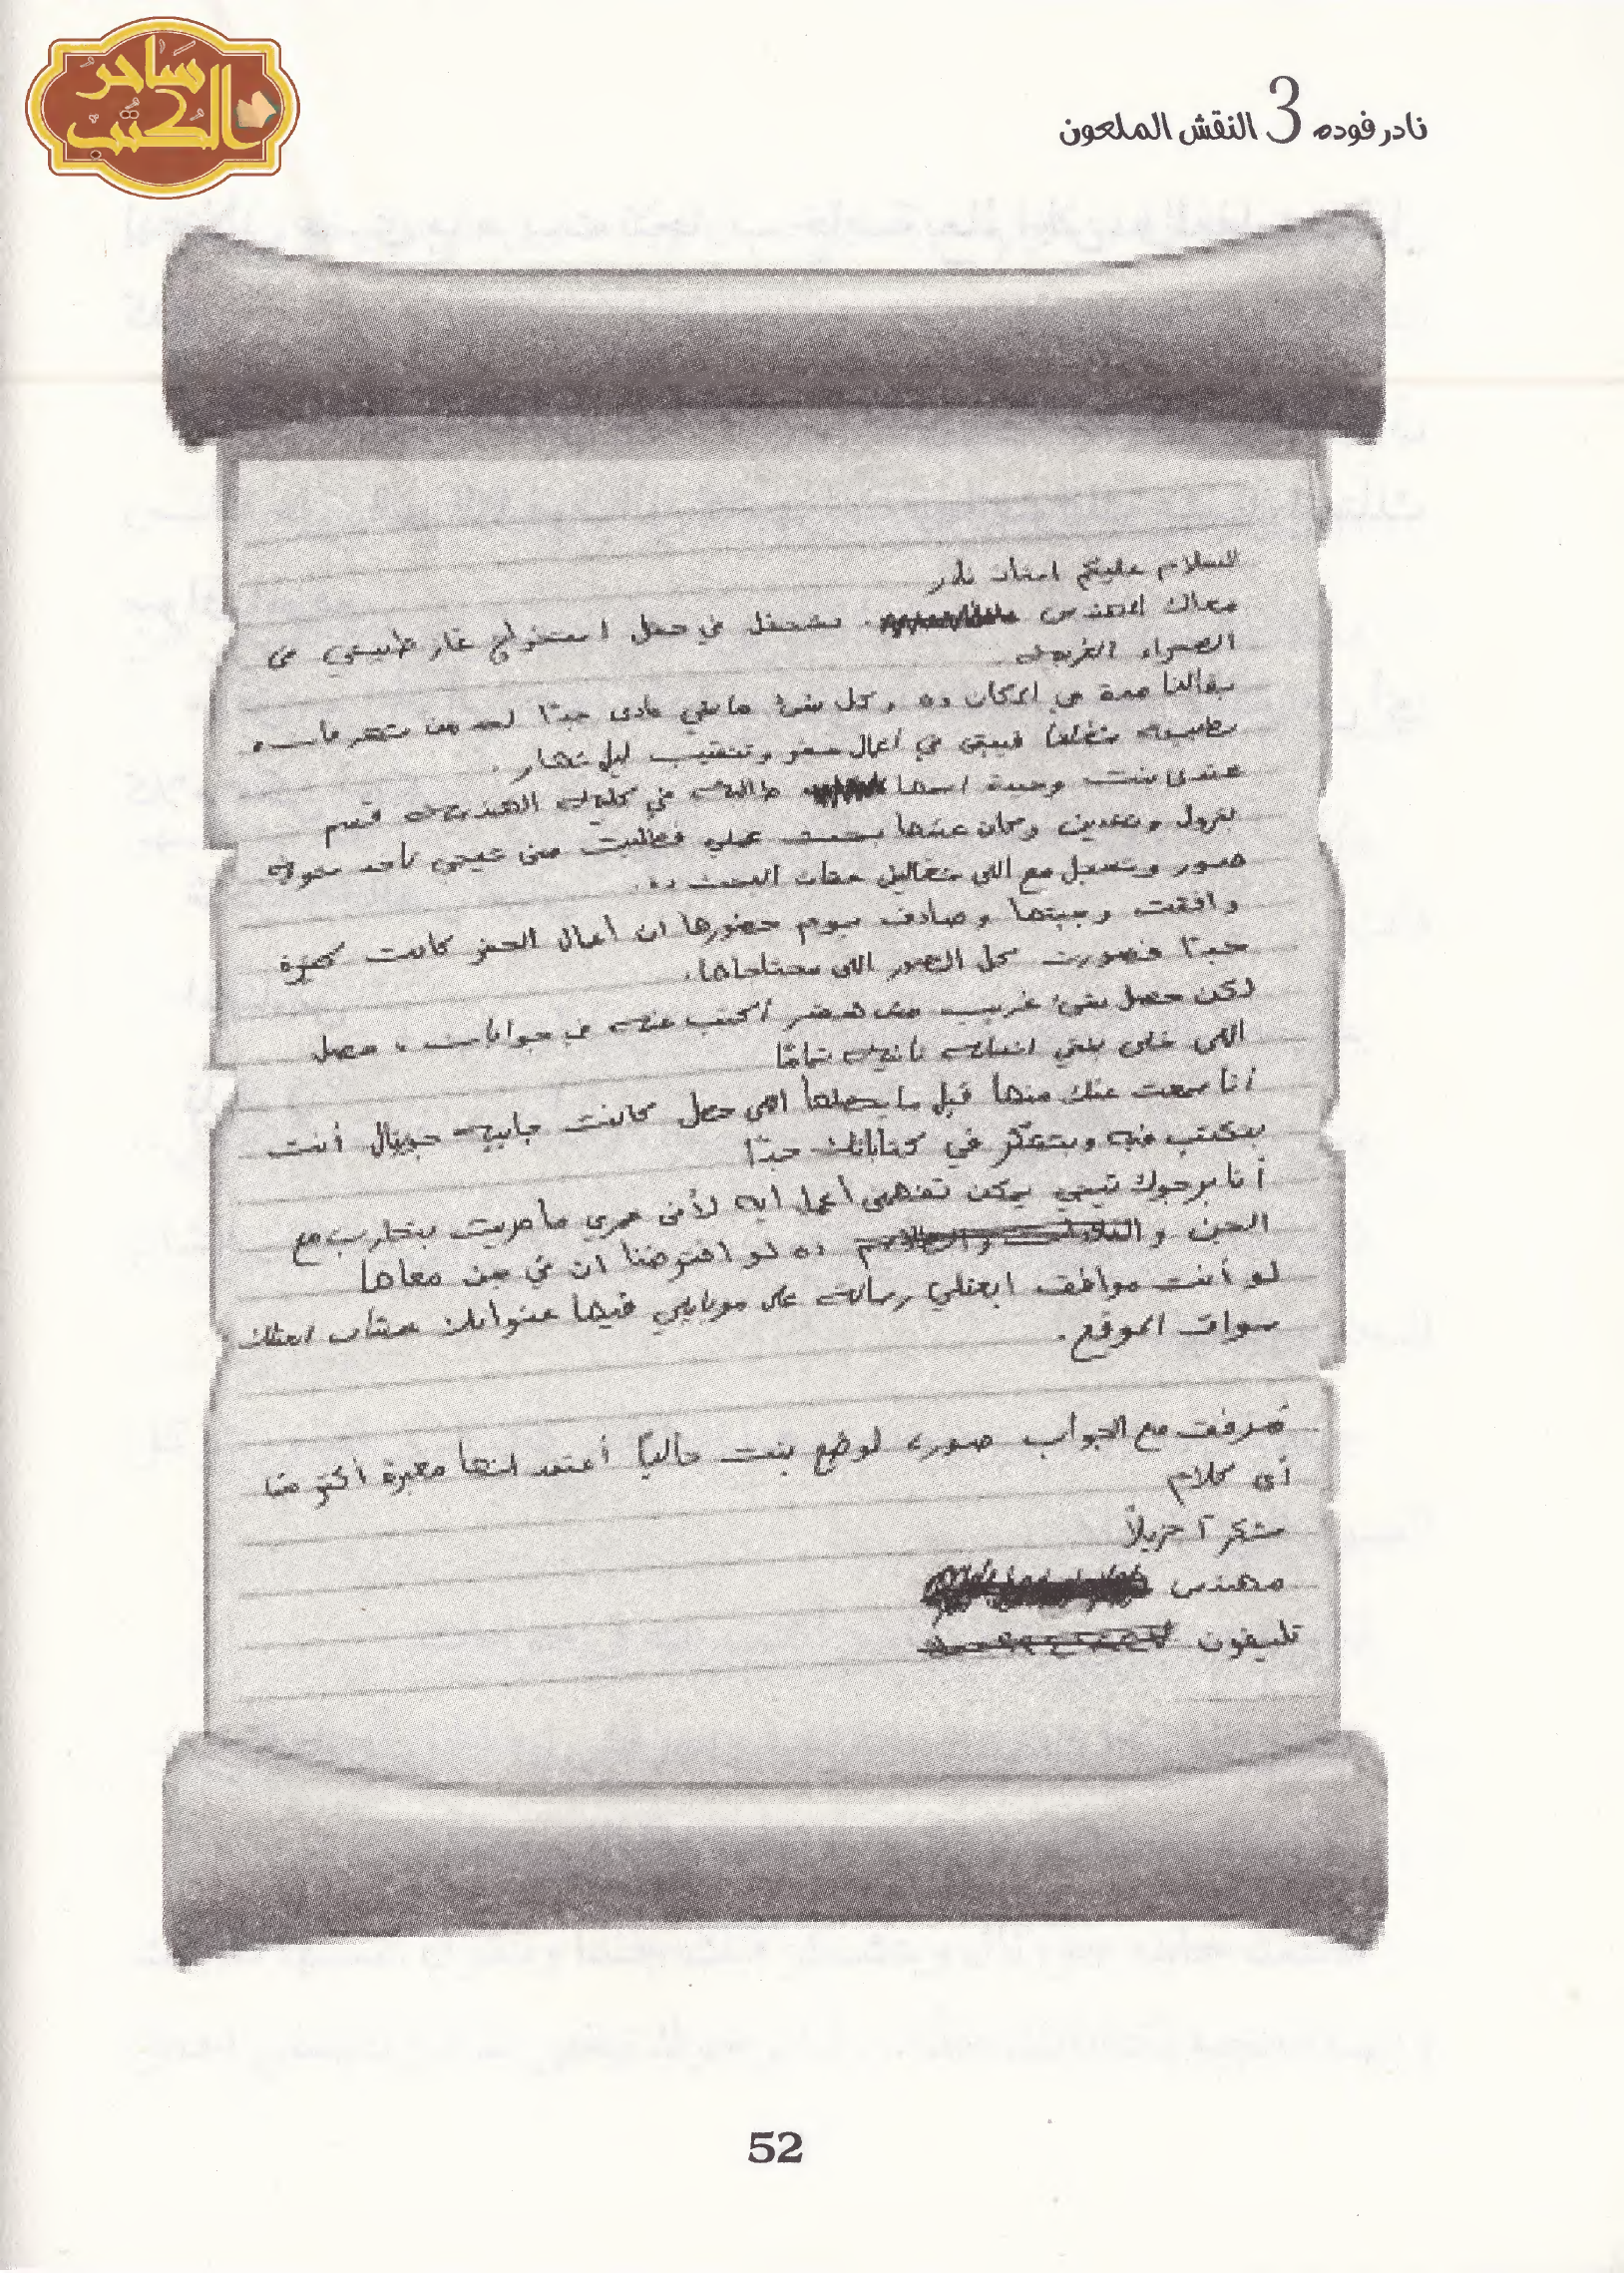 ساحر الكتب
نادر فوده 3 النقش الملعون
السلام عليكم استاذ نادر
معاك المهندس بشتغل في حقل استخراج غاز طبيعي في
الصحراء الغربية
بقالنا مدة في المكان ده وكل شئ ماشي عادى جدًا لحد من شهر فات
طبيعة شغلنا فيبقى في أعمال حفر وتنقيب ليل نهار .
عندى بنت وحيدة اسمها طالبة في كلية الهندسة قسم
بترول وتعدين وكان عندها بحث عملي فطلبت مني تيجي تاخد
صور وتسجل مع اللي شغالين عشان البحث ده .
وافقت وجبتها وصادف يوم حضورها ان أعمال الحفر كانت كتيرة
جدًا فصورت كل الصور اللي محتاجاها .
لكن حصل شئ غريب مش هقدر أكتب عنه في جوابات ، حصل
اللي خلى بنتي انسانة تانية تمامًا
أنا سمعت عنك منها قبل ما يحصلها اللي حصل كانت جايبة جورنال أنت
بتكتب فيه وبتشكر في كتاباتك جدًا
أنا برجوك تيجي يمكن تفهمني أعمل ايه لأني عمري ما مريت بتجارب مع
الجن و ده لو افترضنا ان في جن معاها
لو أنت موافق ابعتلي رسالة على موبايلي فيها عنوانك عشان ابعتلك
سواق الموقع .
مرفق مع الجواب صورة لوضع بنتي حاليًا أعتقد انها معبرة أكتر من
أى كلام
شكرًا جزيلاً
مهندس
تليفون
52